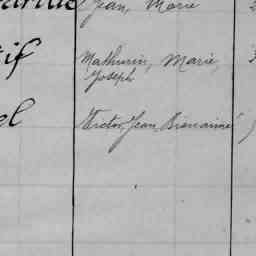 Jean, Marie
if Mathurin, Marie,
Joseph
el Victor, Jean, Bienaimé